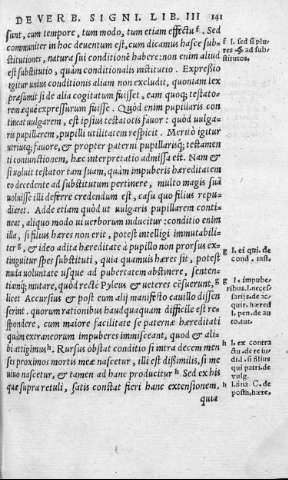 DE VERB. SIGNI. LIB. III 141
sunt, cum tempore, tum modo, tum etiam effectu f. Sed
communiter in hoc deuentum est, cum dicamus hasce sub-
stitutiones, natura sui conditionē habere: non enim aliud
est substitutio, quàm conditionalis institutio. Expreßio
igitur vsius conditionis aliam non excludit, quoniam lex
præsumit si de alia cogitatum fuisset, eam quoq; testato-
rem æquè expressurum fuisse. Quòd enim pupillaris con-
tineat vulgarem, est ipsius testatoris fauor: quòd vulga-
ris pupillarem, pupilli vtilitatem respicit. Meritò igitur
vtriusq; fauore, & propter paterni pupillarisq; testamen
ti coniunctionem, hæc interpretatio admissa est. Nam &
si voluit testator tam suam, quàm impuberis hæreditatem
eo decedente ad substitutum pertinere, multo magis suā
voluisse illi deferre credendum est, casu quo filius repu-
diaret. Adde etiam quòd ut vulgaris pupillarem conti
neat, aliquo modo vi verborum inducitur: conditio enim
illa, si filius hæres non erit, potest intelligi immutabili-
ter g, & ideo adita hæreditate à pupillo non prorsus ex-
tinguitur spes substituti, quia quamuis hæres sit, potest
nuda voluntate vsque ad pubertatem abstinere, senten-
tiamq; mutare, quod rectè Pyleus & veteres cēsuerunt, g
licet Accursius & post eum alij manifesto cauillo dissen
serint. quorum rationibus haudquaquam difficile est re-
spondere, cum maiore facilitate se paternæ hæreditati
quàm extraneorum impuberes immisceant, quod & ali-
bi attigimus h. Rursus obstat conditio si intra decem men
ses proximos mortis meæ nascetur, illi est dißimilis, si me
uiuo nascetur, & tamen ad hanc producitur h. Sed ex his
quæ supra retuli, satis constat fieri hanc extensionem,
quia
f l. sed si plu-
res ff. ad sub-
stitutos.
g l. ei qui. de
cond. inst.
g l. impube-
ribus. l. necess
sarijs. de ac-
quir. hæred
l. pen. de au
to. tut.
h l. ex contra
ctu. de re iu-
did. si filius
qui patri. de
vulg.
h l. diui C. de
posth. hære.